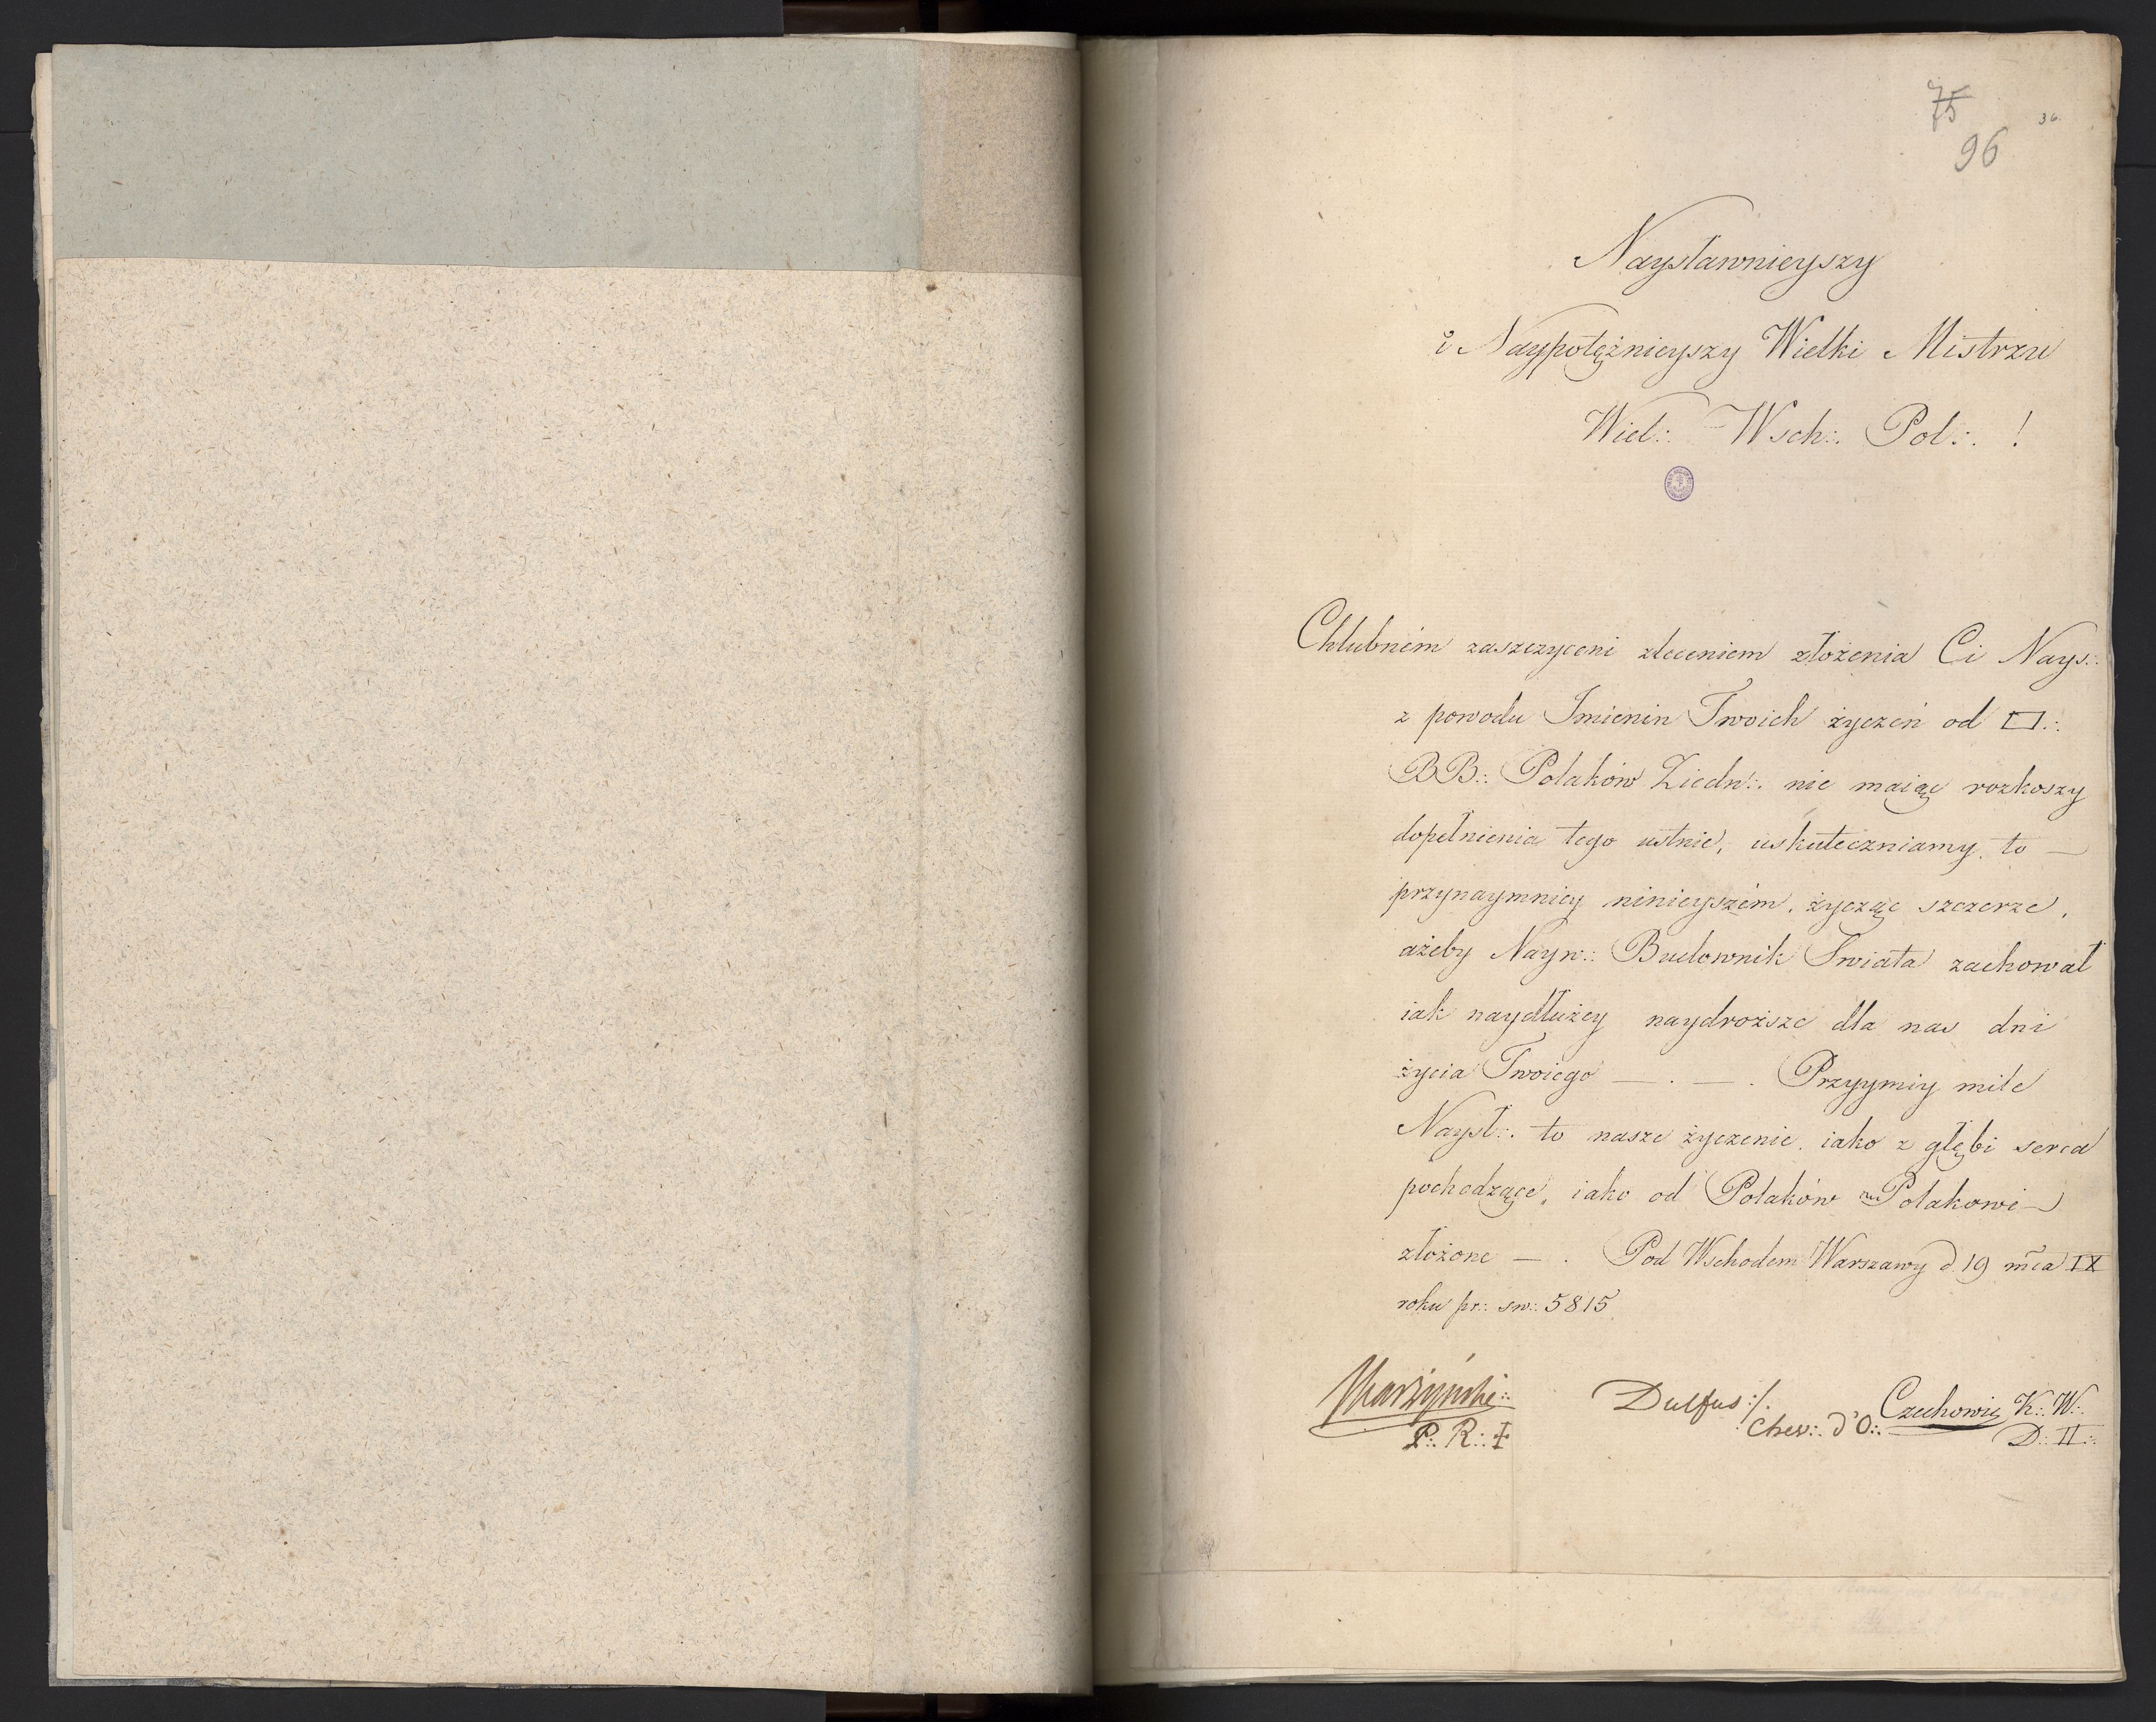 75
36
96
Naysławnieyszy
i Naypotężnieyszy Wielki Mistrzu
Wiel∴ Wsch∴ Pol∴ !
Chlubném zaszczyceni zleceniem złożenia Ci Nays∴
z powodu Imienin Twoich życzeń od □∴
BB∴ Polaków Ziedn∴ nie maiąc rozkoszy
dopełnienia tego ustnie, uskuteczniamy to —
przynaymniey ninieyszém, życząc szczerze,
ażeby Nayw∴ Budownik Świata zachował
iak naydłużey naydroższe dla nas dni
życia Twoiego — . — . Przyymiy mile
Naysł∴ to nasze życzenie, iako z głębi serca
pochodzące, iako od Polaków Polakowi —
złożone — . Pod Wschodem Warszawy d. 19 mca IX
roku pr∴ sw∴ 5815.
Dulfus ∴/.
Czechowicz K∴ W∴
P∴ R∴ ‡
Chev∴ d'O∴
D∴ II∴